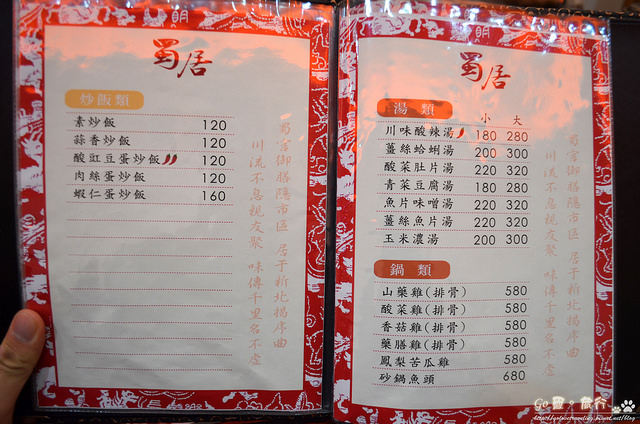 蜀居
炒飯類
素炒飯 120
蒜香炒飯 120
酸豇豆蛋炒飯 120
肉絲蛋炒飯 120
蝦仁蛋炒飯 160
蜀宮御膳隱市區 居于新北揚序曲
川流不息親友聚 味傳千里名不虛
蜀居
湯類
小 大
川味酸辣湯 180 280
薑絲蛤蜊湯 200 300
酸菜肚片湯 220 320
青菜豆腐湯 180 280
魚片味噌湯 220 320
薑絲魚片湯 220 320
玉米濃湯 200 300
鍋類
山藥雞(排骨) 580
酸菜雞(排骨) 580
香菇雞(排骨) 580
藥膳雞(排骨) 580
鳳梨苦瓜雞 580
砂鍋魚頭 680
蜀宮御膳隱市區 居于新北揚序曲
川流不息親友聚 味傳千里名不虛